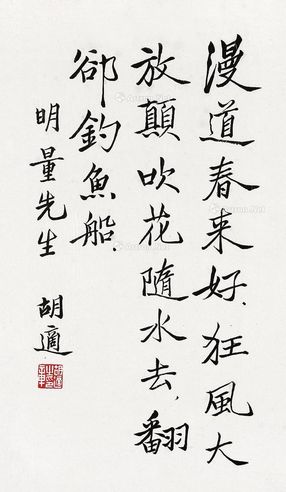 漫道春来好.狂風大
放顛吹花隨水去.翻
郤釣魚船.
明量先生
胡適